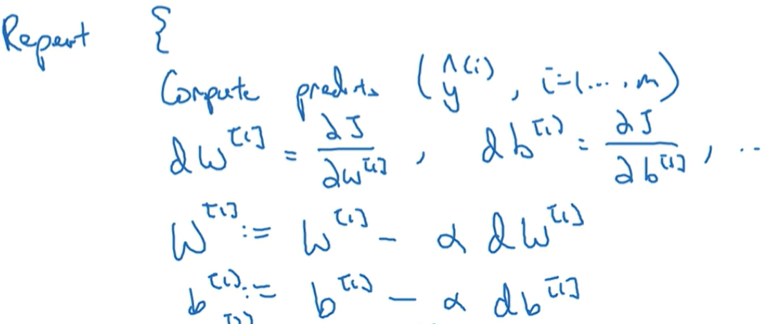 Repeat {
Compute predicts (ŷ^(i), i=1...,m)
dW^[1] = ∂J/∂W^[1], db^[1] = ∂J/∂b^[1], ..
W^[1] := W^[1] - α dW^[1]
b^[1] := b^[1] - α db^[1]